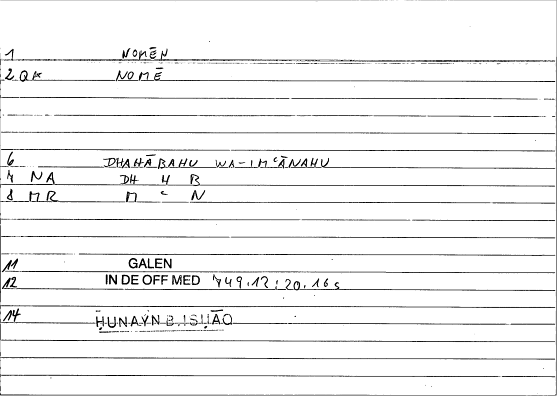 1 NOMĒN
2 QK NOMĒ
6 DHAHĀBAHU WA-IMʿĀNAHU
7 NA DH H B
8 MR M ʿ N
11 GALEN
12 IN DE OFF MED 749.12:20.16s
14 ḤUNAYN B. ISḤĀQ